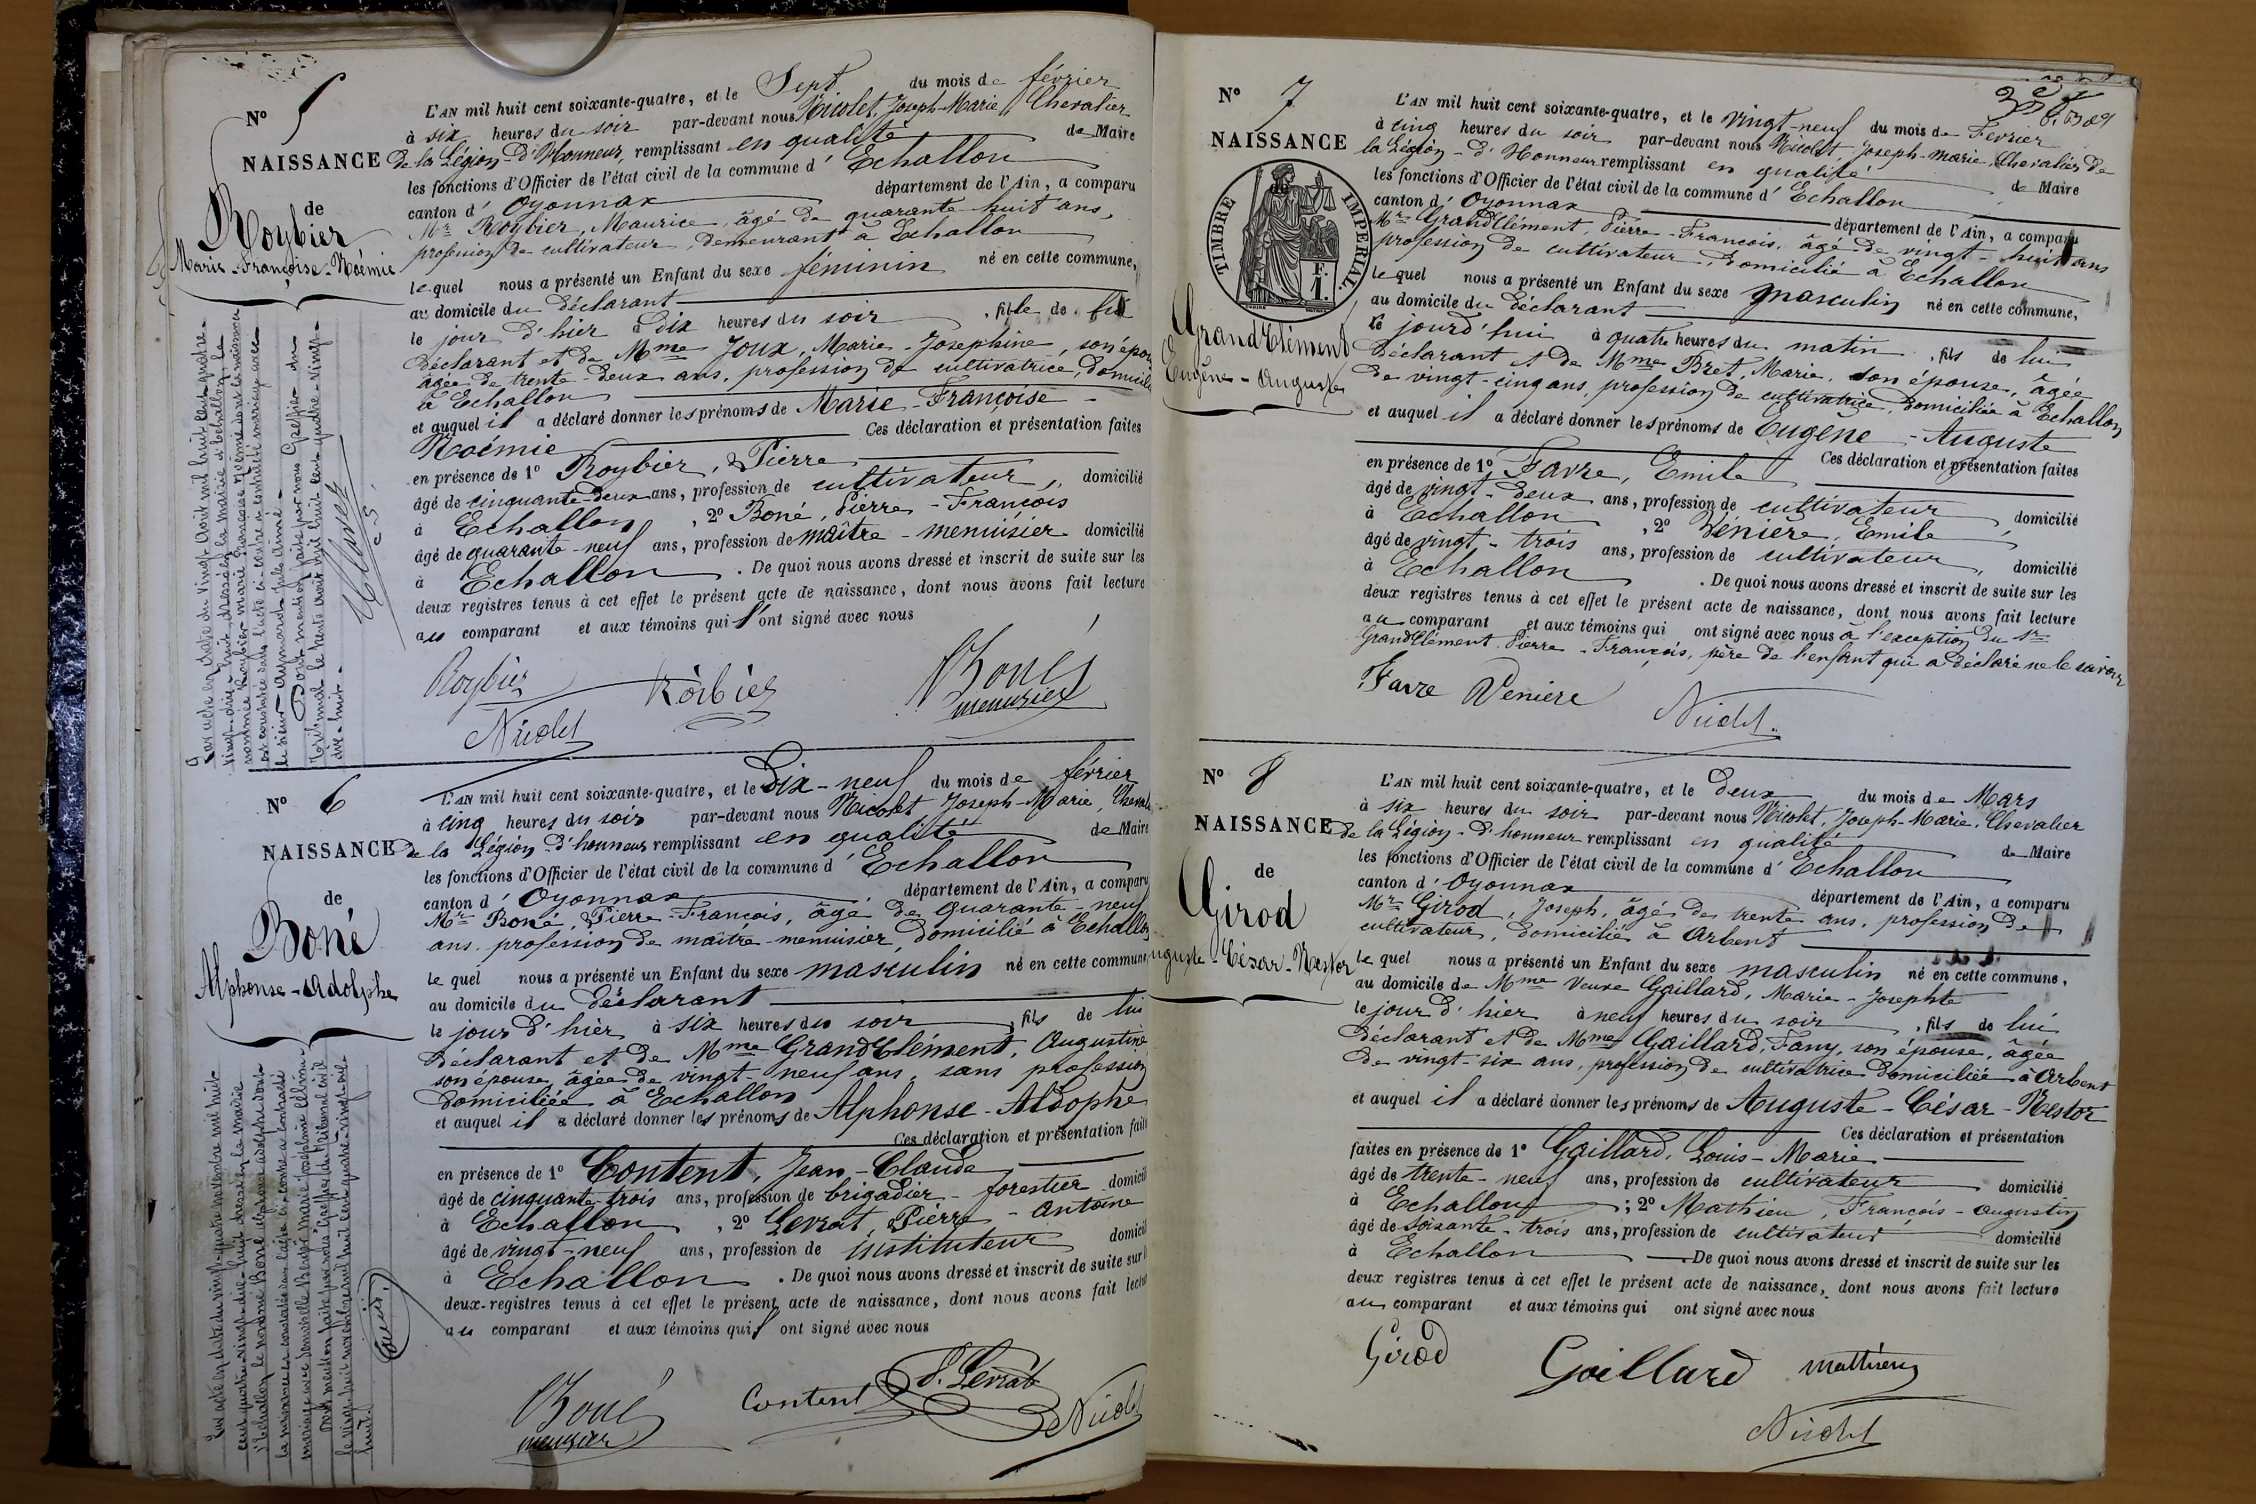 N° 5
NAISSANCE
de
Roybier
Marie-Françoise-Noémie
L'AN mil huit cent soixante-quatre, et le Sept du mois de février
à six heures du soir par-devant nous Nicolet, Joseph-Marie, Chevalier
de la Légion d'Honneur, remplissant en qualité de Maire
les fonctions d'Officier de l'état civil de la commune d'Echallon
canton d'Oyonnax département de l'Ain, a comparu
Mr Roybier, Maurice, âgé de quarante-huit ans,
profession de cultivateur, demeurant à Echallon
lequel nous a présenté un Enfant du sexe féminin né en cette commune,
au domicile du déclarant
le jour d'hier à dix heures du soir, fille de lui
déclarant et de Mme Joux, Marie-Josephine, son épou
âgée de trente-deux ans, profession de cultivatrice, domicili
à Echallon
et auquel il a déclaré donner les prénoms de Marie-Françoise-
Noémie Ces déclaration et présentation faites
en présence de 1° Roybier, Pierre
âgé de cinquante-deux ans, profession de cultivateur, domicilié
à Echallon, 2° Boné, Pierre-François
âgé de quarante-neuf ans, profession de maître-menuisier domicilié
à Echallon. De quoi nous avons dressé et inscrit de suite sur les
deux registres tenus à cet effet le présent acte de naissance, dont nous avons fait lecture
au comparant et aux témoins qui l'ont signé avec nous
Roybier Roibier Boné
menuzier
Nicolet
Par acte en date du vingt Août mil huit cent quatre-
vingt-dix-huit, dressé en la mairie d'Echallon, la
nommée Roybier Marie Françoise Noémie dont la naissance
est constatée dans l'acte ci-contre a contracté mariage avec
le sieur Aymard Jules Aimé.
Dont mention faite par nous Greffier du
Tribunal le trente août mil huit cent quatre vingt-
dix-huit.
N° 6
NAISSANCE
de
Boné
Alphonse-Adolphe
L'AN mil huit cent soixante-quatre, et le Dix-neuf du mois de février
à cinq heures du soir par-devant nous Nicolet Joseph-Marie, Cheval
de la Légion d'honneur remplissant en qualité de Maire
les fonctions d'Officier de l'état civil de la commune d'Echallon
canton d'Oyonnax département de l'Ain, a comparu
Mr Boné, Pierre-François, âgé de quarante-neuf
ans, profession de maître-menuisier, domicilié à Echallon
lequel nous a présenté un Enfant du sexe masculin né en cette commune
au domicile du déclarant
le jour d'hier à six heures du soir, fils de lui
déclarant et de Mme GrandClément, Augustine
son épouse, âgée de vingt-neuf ans, sans profession
domiciliée à Echallon
et auquel il a déclaré donner les prénoms de Alphonse-Aldophe
Ces déclaration et présentation fait
en présence de 1° Content, Jean-Claude
âgé de cinquante-trois ans, profession de brigadier-forestier domicil
à Echallon, 2° Levrat, Pierre-Antoine
âgé de vingt-neuf ans, profession de instituteur domicil
à Echallon. De quoi nous avons dressé et inscrit de suite sur l
deux registres tenus à cet effet le présent acte de naissance, dont nous avons fait lectur
au comparant et aux témoins qui ont signé avec nous
Boné Content P. Levrat
menuzier Nicolet
Par acte en date du vingt-quatre novembre mil huit
cent quatre-vingt-dix-huit dressé en la mairie
d'Echallon le nommé Boné Alphonse Adolphe dont
la naissance est constatée en l'acte ci-contre a contracté
mariage avec demoiselle
Dont mention faite par nous Greffier du Tribunal civil
le vingt huit novembre mil huit cent quatre-vingt-dix-
huit.
N° 7
NAISSANCE
TIMBRE IMPERIAL
F.
1.
GrandClément
Eugène-Auguste
L'AN mil huit cent soixante-quatre, et le vingt-neuf du mois de Février
à cinq heures du soir par-devant nous Nicolet, Joseph-Marie, Chevalier de
la Légion-d'Honneur remplissant en qualité de Maire
les fonctions d'Officier de l'état civil de la commune d'Echallon
canton d'Oyonnax département de l'Ain, a comparu
Mr GrandClément, Pierre-François, âgé de vingt-huit ans
profession de cultivateur, domicilié à Echallon
lequel nous a présenté un Enfant du sexe masculin né en cette commune,
au domicile du déclarant
le jourd'hui à quatre heures du matin, fils de lui
déclarant et de Mme Bret, Marie, son épouse, âgée
de vingt-cinq ans, profession de cultivatrice, domiciliée à Echallon
et auquel il a déclaré donner les prénoms de Eugène-Auguste
Ces déclaration et présentation faites
en présence de 1° Favre, Emile
âgé de vingt-deux ans, profession de cultivateur, domicilié
à Echallon, 2° Venière, Emile
âgé de vingt-trois ans, profession de cultivateur, domicilié
à Echallon. De quoi nous avons dressé et inscrit de suite sur les
deux registres tenus à cet effet le présent acte de naissance, dont nous avons fait lecture
au comparant et aux témoins qui ont signé avec nous à l'exception du Sr
GrandClément Pierre-François, père de l'enfant qui a déclaré ne le savoir
Favre Veniere Nicolet
N° 8
NAISSANCE
de
Girod
uguste-César-Nestor
L'AN mil huit cent soixante-quatre, et le deux du mois de Mars
à six heures du soir par-devant nous Nicolet, Joseph-Marie, Chevalier
de la Légion-d'honneur remplissant en qualité de Maire
les fonctions d'Officier de l'état civil de la commune d'Echallon
canton d'Oyonnax département de l'Ain, a comparu
Mr Girod, Joseph, âgé de trente ans, profession de
cultivateur, domicilié à Arbent
lequel nous a présenté un Enfant du sexe masculin né en cette commune,
au domicile de Mme Veuve Gaillard, Marie-Josephte
le jour d'hier à neuf heures du soir, fils de lui
déclarant et de Mme Gaillard, Fany, son épouse, âgée
de vingt-six ans, profession de cultivatrice domiciliée à Arbent
et auquel il a déclaré donner les prénoms de Auguste-César-Nestor
Ces déclaration et présentation
faites en présence de 1° Gaillard, Louis-Marie
âgé de trente-neuf ans, profession de cultivateur domicilié
à Echallon; 2° Mathieu, François-Augustin
âgé de soixante-trois ans, profession de cultivateur domicilié
à Echallon De quoi nous avons dressé et inscrit de suite sur les
deux registres tenus à cet effet le présent acte de naissance, dont nous avons fait lecture
au comparant et aux témoins qui ont signé avec nous
Girod Gaillard Mathieu
Nicolet